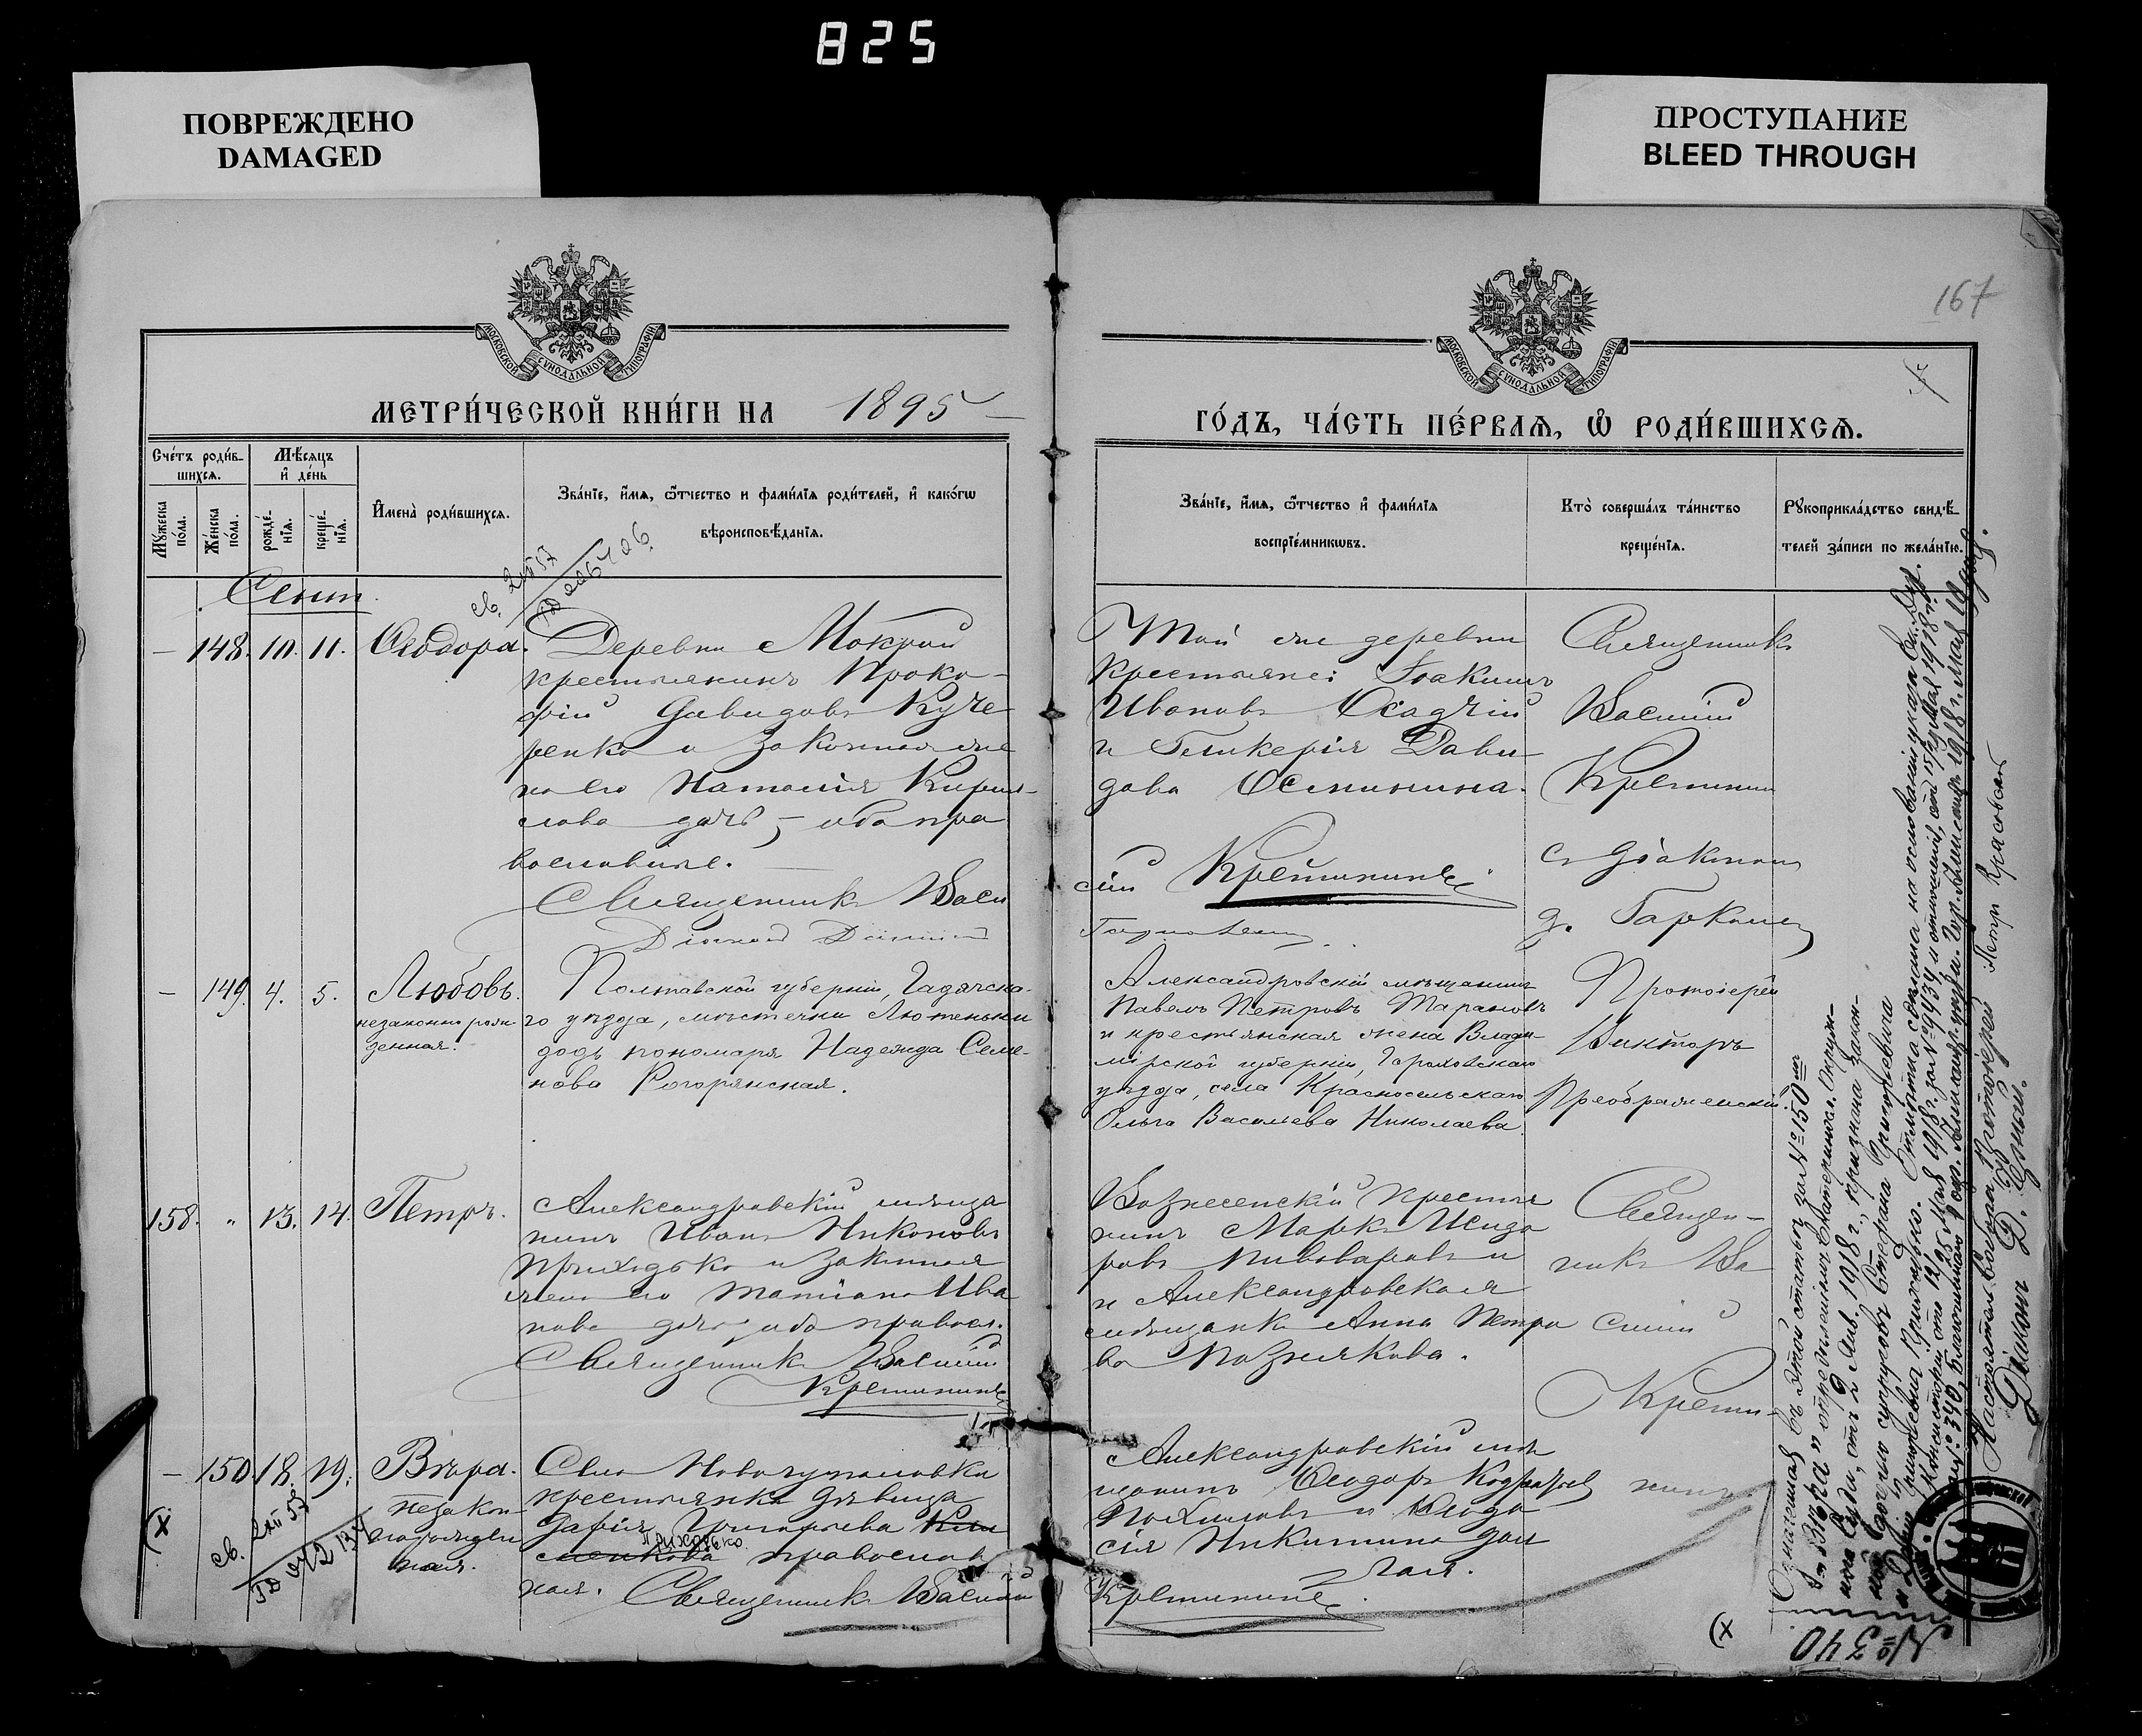 825
ПОВРЕЖДЕНО
DAMAGED
ПРОСТУПАНИЕ
BLEED THROUGH
167
МОСКОВСКОЙ СѴНОДАЛЬНОЙ ТИПОГРАФІИ
МОСКОВСКОЙ СѴНОДАЛЬНОЙ ТИПОГРАФІИ
МЕТРИ́ЧЕСКОЙ КНИ́ГИ НА 1895
ГО́ДЪ, ЧА́СТЬ ПЕ́РВАѦ, Ѡ҆ РОДИ́ВШИХСѦ.
Сче́тъ роди́в-
шихсѧ.
Мꙋ́жеска по́ла.
Же́нска по́ла.
Мѣ́сѧцъ
и҆ де́нь
рожде́-
нїѧ.
креще́-
нїѧ.
И҆мена̀ роди́вшихсѧ.
Зва́нїе, и҆́мѧ, ѻ҆́тчество и фами́лїѧ роди́телей, и҆ како́гѡ
вѣроисповѣ́данїѧ.
Зва́нїе, и҆́мѧ, ѻ҆́тчество и҆ фами́лїѧ
воспрїе́мникѡвъ.
Кто̀ соверша́лъ та́инство
креще́нїѧ.
Рꙋкоприкла́дство свидѣ́-
телей за́писи по жела́нїю.
Сент.
— 148. 10. 11. Ѳеодора.
Деревни Мокрой
крестьянинъ Проко-
фій Давидовъ Куче
ренко и законная же
на его Наталія Кирил-
лова дочь, оба пра
вославные.
Священникъ Васи
Той же деревни
крестьяне: Іоакимъ
Ивановъ Осадчій
и Гликерія Дави
дова Осьминина.
лій Кретининъ
Священникъ
Василій
Кретинин
с діаконом
Д. Гарком
— 149. 4. 5. Любовь.
незаконно рож
денная.
Полтавской губерніи, Гадячска-
го уѣзда, мѣстечка Лютеньки
дочь пономаря Надежда Семе-
нова Рогорянская.
Александровскій мѣщанинъ
Павелъ Петровъ Тарановъ
и крестьянская жена Влади-
мірской губерніи, Гороховскаго
уѣзда, села Красносельскаго
Ольга Васильева Николаева.
Протоіерей
Викторъ
Преображенскій
158. " 13. 14. Петръ.
Александровскій мѣща
нинъ Иванъ Никоновъ
Приходько и законная
жена его Татіана Ива
нова дочь, оба правосл.
Священникъ Василій
Кретининъ
Вознесенскій крестья
нинъ Маркъ Исидо
ровъ Пивоваровъ и
и Александровская
мѣщанка Анна Петро
ва Познякова.
Священ-
никъ Ва
силій
Крети-
нинъ.
— 150. 18. 19. Вѣра.
незакон
норожден
ная.
Села Новогупаловки
крестьянка дѣвица
Дарія Григорьева
Приходько
православ
ная. Священникъ Василій
Александровскій мѣ
щанинъ Ѳеодоръ Кодратьев
и Ѳеодо
сія Никитина
Кретининъ
(х
(х
Означенная въ этой статьѣ за № 150 м
"Вѣра" опредѣленіемъ Екатеринослав. Окруж-
наго Суда, отъ 9 Янв. 1918 г., признана закон-
ной дочерью супруговъ Стефана Григорьевича
и Даріи Григорьевны Приходько. Отмѣтка сдѣлана на основаніи указа Ек. Дух.
Консисторіи отъ 12/25 Мая 1918 г. за № 9934
Настоятель Собора Протоіерей Петръ Красовскій
Діаконъ
№ 340